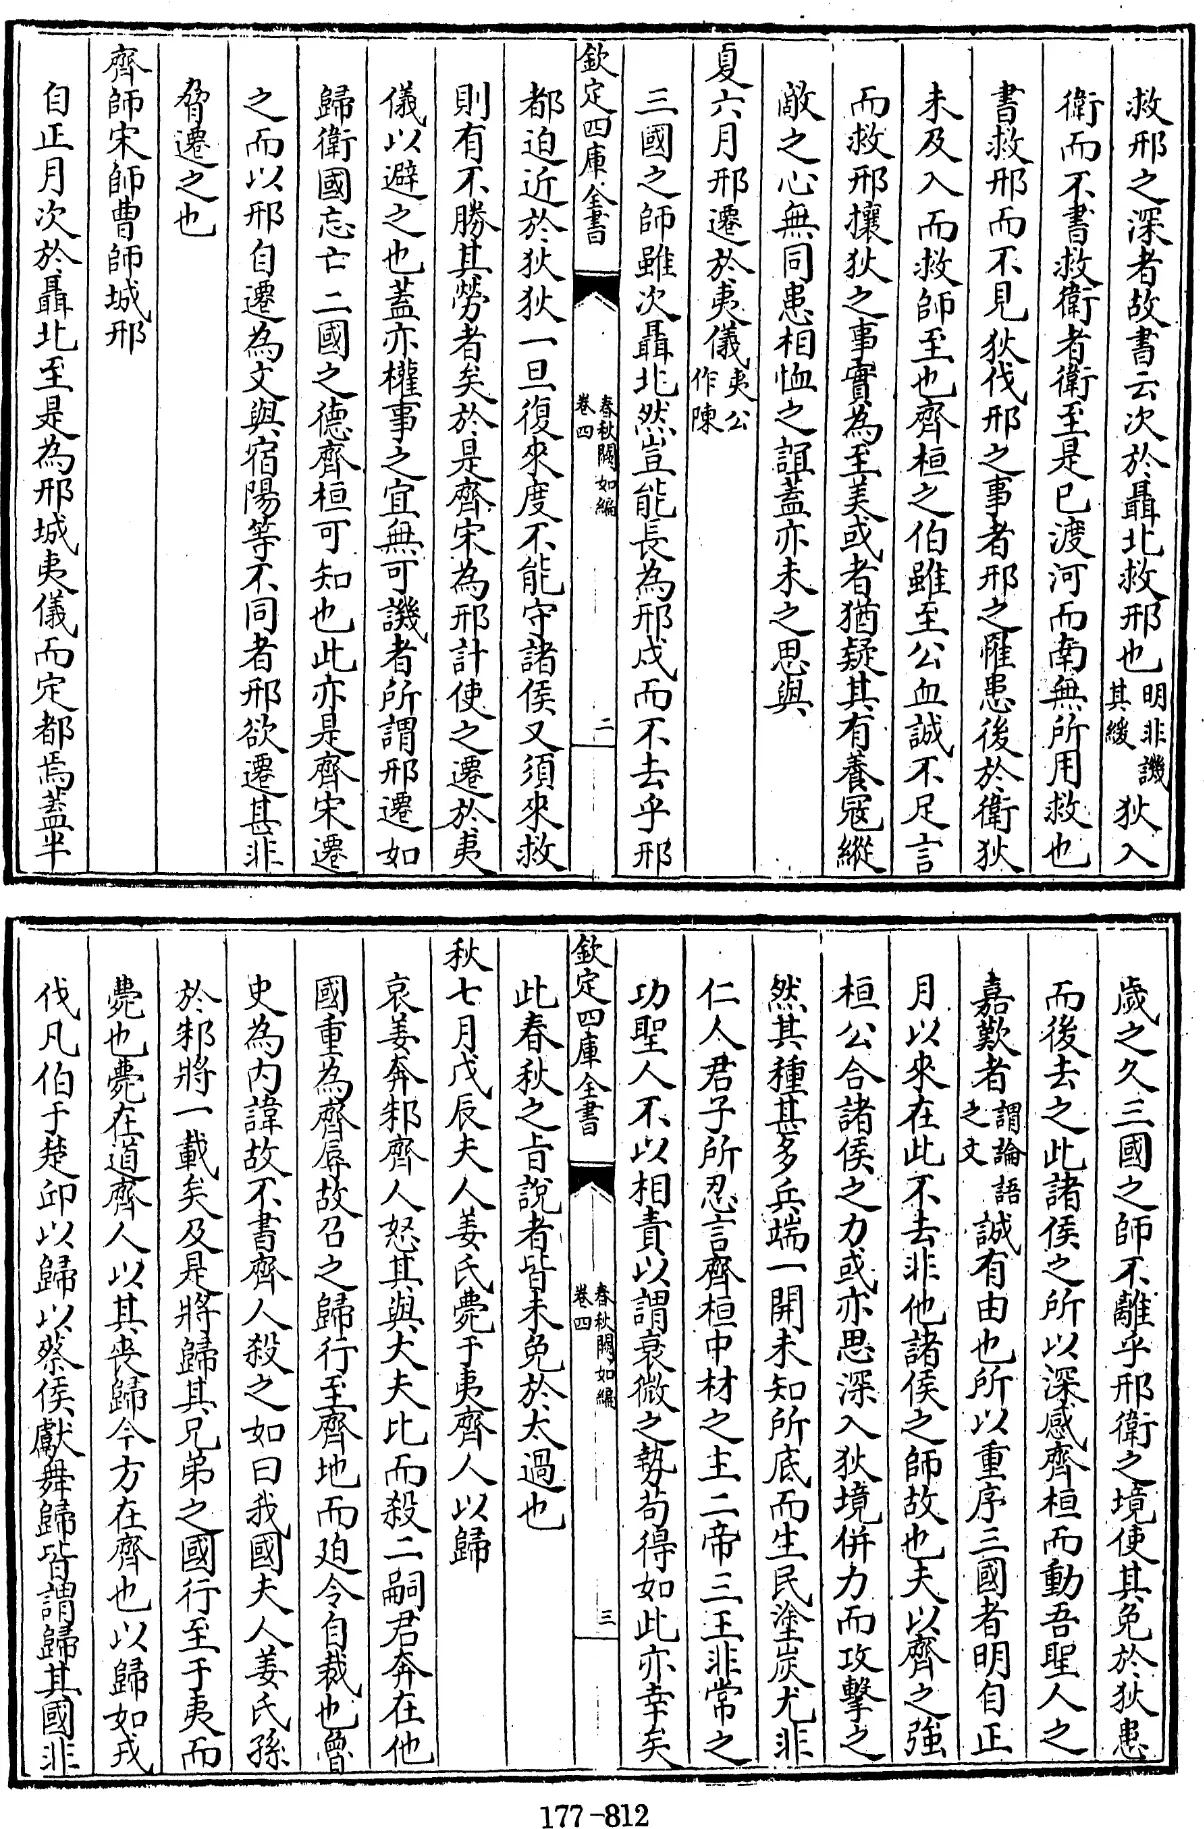 救邢之深者故書云次於聶北救邢也明非譏其緩狄入
衛而不書救衛者衛至是已渡河而南無所用救也
書救邢而不見狄伐邢之事者邢之罹患後於衛狄
未及入而救師至也齊桓之伯雖至公血誠不足言
而救邢攘狄之事實為至美或者猶疑其有養寇縱
敵之心無同患相恤之誼蓋亦未之思與
夏六月邢遷於夷儀夷公作陳
三國之師雖次聶北然豈能長為邢戍而不去乎邢
欽定四庫全書
春秋闕如編
卷四
二
都迫近於狄狄一旦復來度不能守諸侯又須來救
則有不勝其勞者矣於是齊宋為邢計使之遷於夷
儀以避之也蓋亦權事之宜無可譏者所謂邢遷如
歸衛國忘亡二國之德齊桓可知也此亦是齊宋遷
之而以邢自遷為文與宿陽等不同者邢欲遷甚非
脅遷之也
齊師宋師曹師城邢
自正月次於聶北至是為邢城夷儀而定都焉蓋半
歲之久三國之師不離乎邢衛之境使其免於狄患
而後去之此諸侯之所以深感齊桓而動吾聖人之
嘉歎者謂論語之文誠有由也所以重序三國者明自正
月以來在此不去非他諸侯之師故也夫以齊之強
桓公合諸侯之力或亦思深入狄境併力而攻擊之
然其種甚多兵端一開未知所底而生民塗炭尤非
仁人君子所忍言齊桓中材之主二帝三王非常之
功聖人不以相責以謂衰微之勢苟得如此亦幸矣
欽定四庫全書
春秋闕如編
卷四
三
此春秋之旨說者皆未免於太過也
秋七月戊辰夫人姜氏薨于夷齊人以歸
哀姜奔邾齊人怒其與大夫比而殺二嗣君奔在他
國重為齊辱故召之歸行至齊地而廹令自裁也魯
史為內諱故不書齊人殺之如曰我國夫人姜氏孫
於邾將一載矣及是將歸其兄弟之國行至于夷而
薨也薨在道齊人以其喪歸今方在齊也以歸如戎
伐凡伯于楚邱以歸以蔡侯獻舞歸皆謂歸其國非
177-812